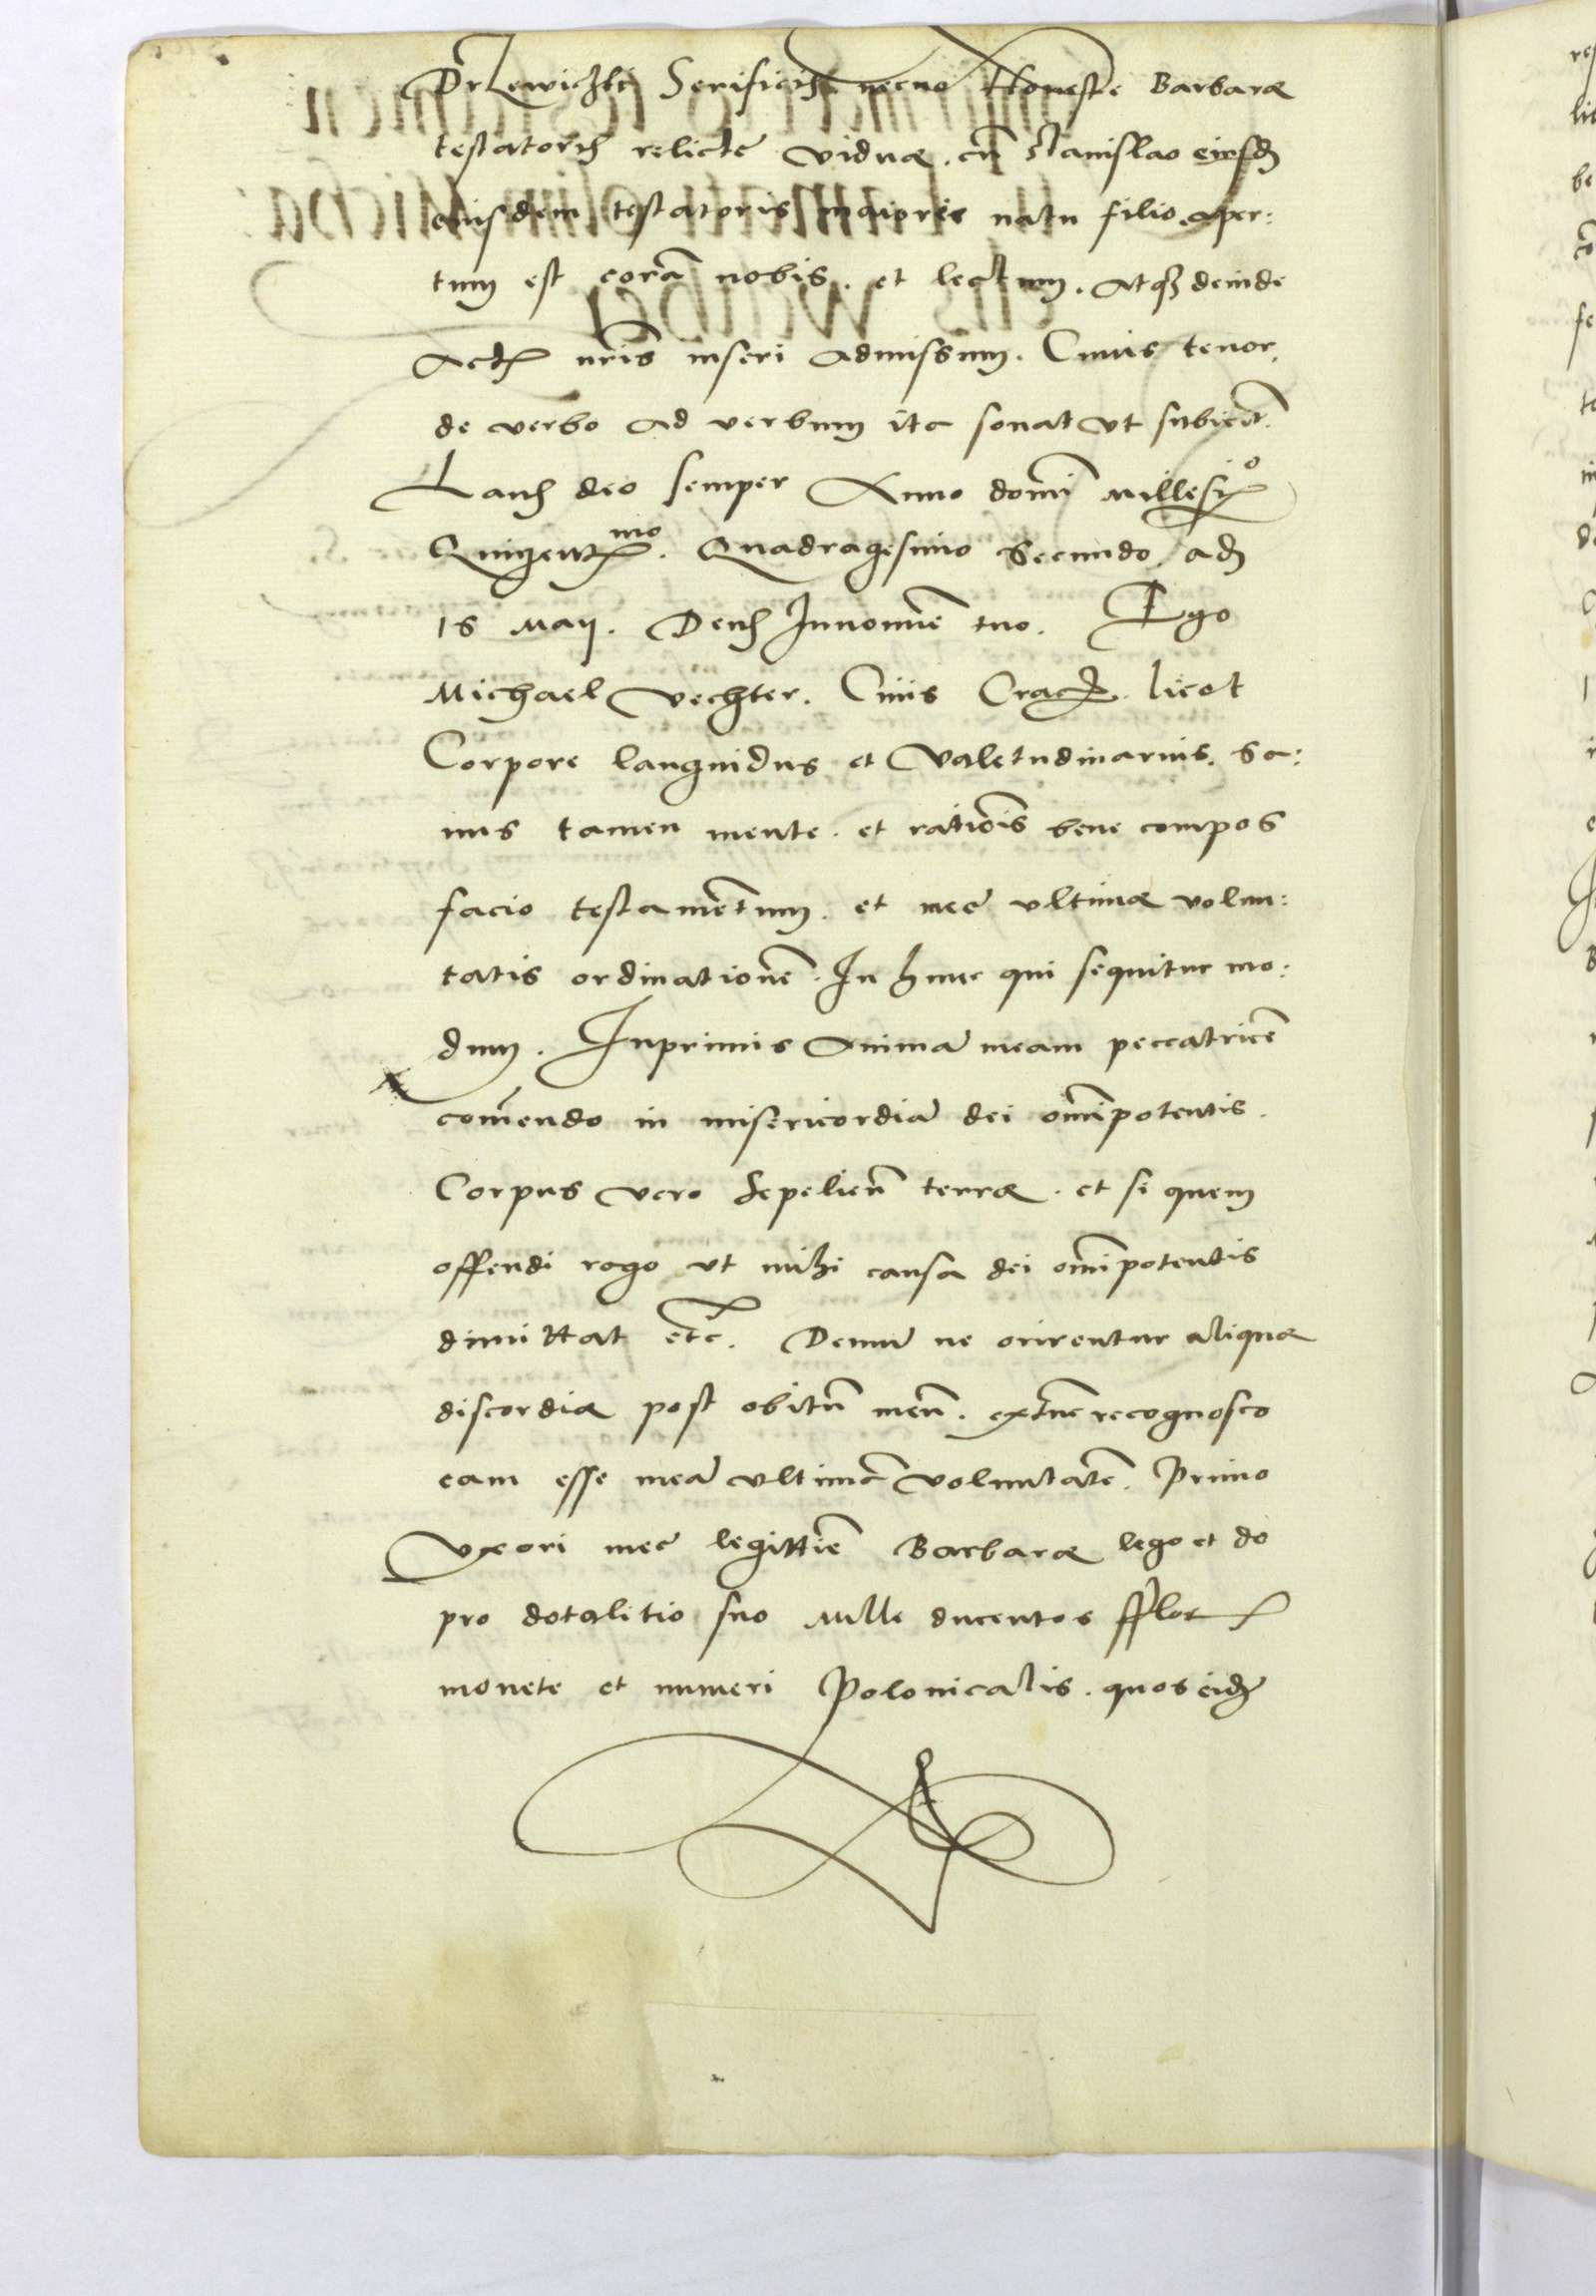 Drzewiczki Serificis necno Honeste Barbaræ
testatoris relicte viduæ. cu Stanislao eiusd
eiusdem testatoris maioris natu filio. aper:
tum est corā nobis. et lectum. Atqȝ deinde
Actis nris inseri admissum. Cuius tenor
de verbo ad verbum ita sonat vt subicit
Laus deo semper Anno domi Millesio
Quingentmo. Quadragesimo Secundo. ad
15 Maij. Deus Innomine tuo. Ego
Michael Vechter. Ciuis Crac. licet
Corpore languidus et Valetudinarius. Sa:
nus tamen mente. et rationis bene compos
facio testamentum. et mee vltimæ volun:
tatis ordinationē. In hunc qui sequitur mo:
dum. Inprimis Animā meam peccatricē
comendo in misericordiā dei omipotentis.
Corpus vero sepeliend terræ. et si quem
offendi rogo vt mihi causa dei omipotentis
dimittat etc. Demū ne orirentur aliquæ
discordiæ post obitū meū. extunc recognosco
eam esse meā vltimā voluntatē. Primo
Vxori mee legittime Barbaræ lego et do
pro dotalitio suo Mille ducentos fflor
monete et numeri Polonicalis. quos eid